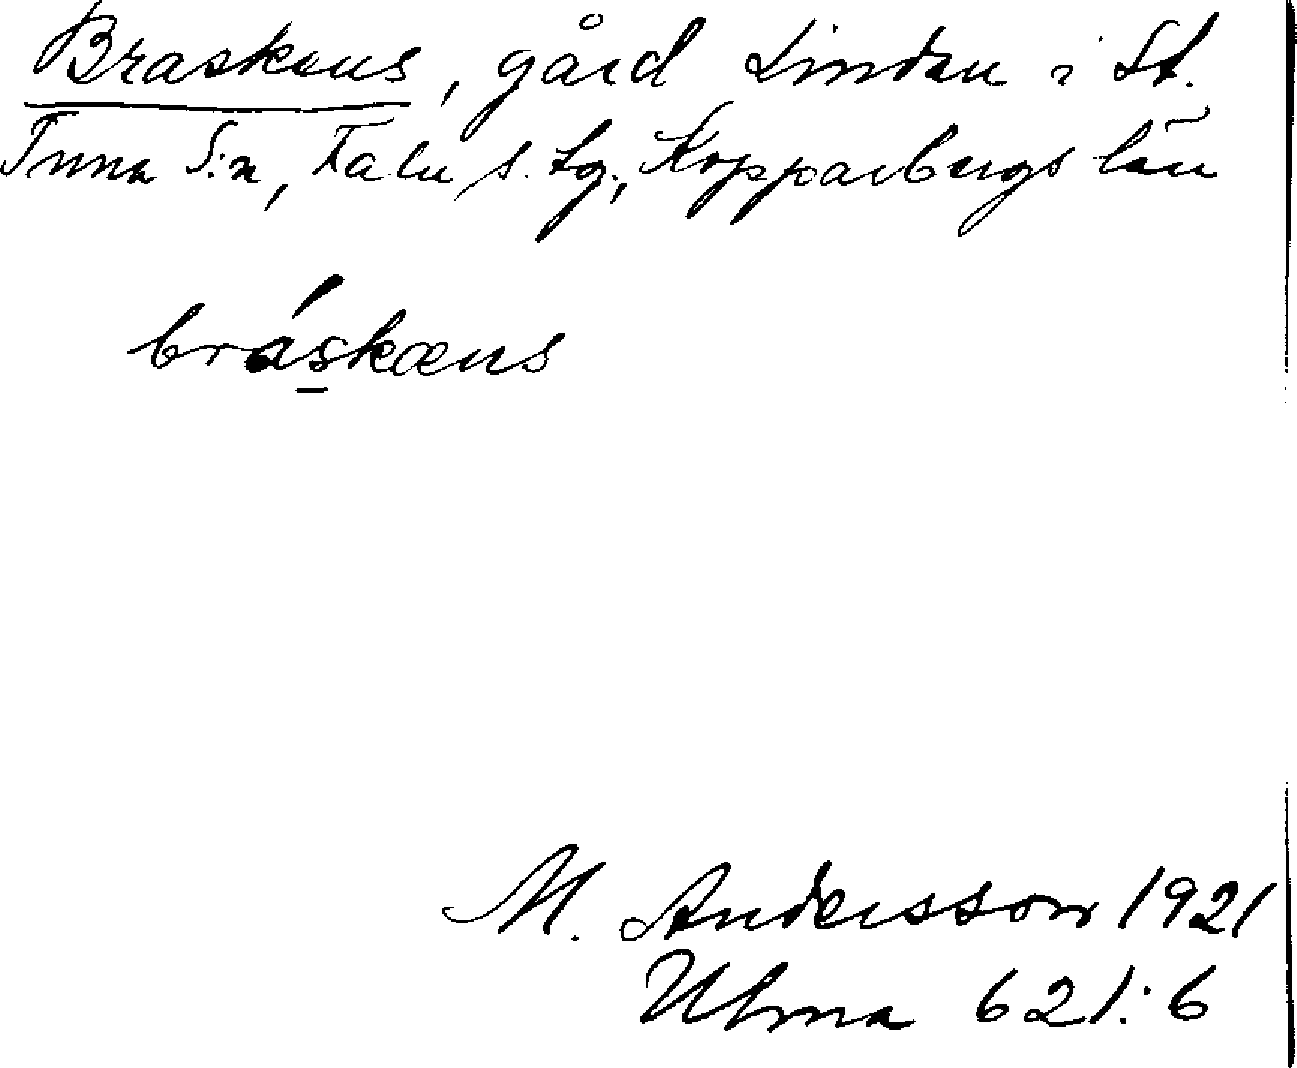 Braskens, gård Linden i St.
Tuna S:n, Falu s. tg., Kopparbergs län
bráskæns
M. Andersson 1921
Ulma 621:6